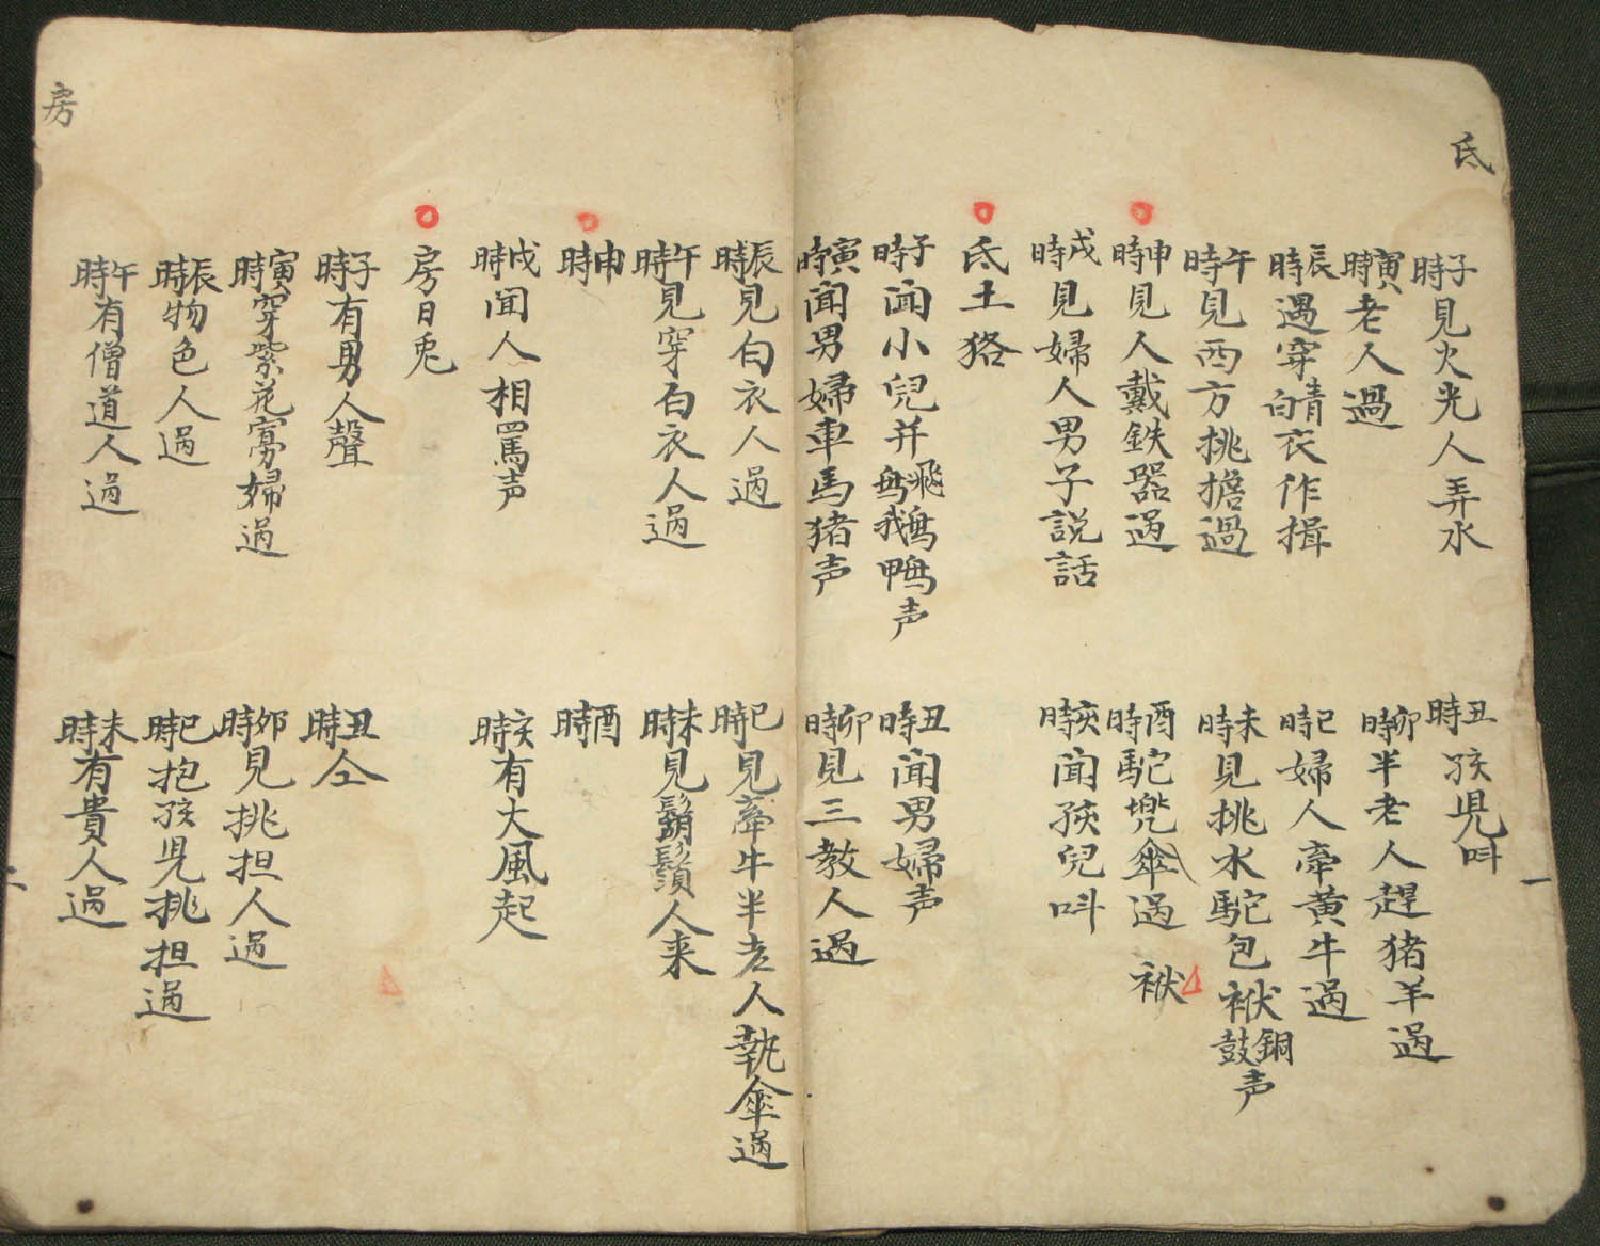 氐
子時見火光人弄水
丑時孩児呌
寅時老人過
卯時半老人趕猪羊過
辰時遇穿白晴衣作揖
巳時婦人牽黄牛過
午時見西方挑擔過
未時見挑水駝包袱銅鼓声
申時見人戴鉄器過
酉時駝兠傘過
袱
戌時見婦人男子説話
亥時聞孩兒呌
氐土狢
子時聞小兒并飛鳥鵝鴨声
丑時聞男婦声
寅時聞男婦車馬猪声
卯時見三教人過
辰時見白衣人過
巳時見牽牛半老人執傘過
午時見穿白衣人過
未時見鬍鬚人来
申時
酉時
戌時聞人相罵声
亥時有大風起
房日兎
子時有男人聲
丑時仝
寅時穿紫花寡婦過
卯時見挑担人過
辰時物色人過
巳時抱孩児挑担過
午時有僧道人過
未時有貴人過
房
一
二